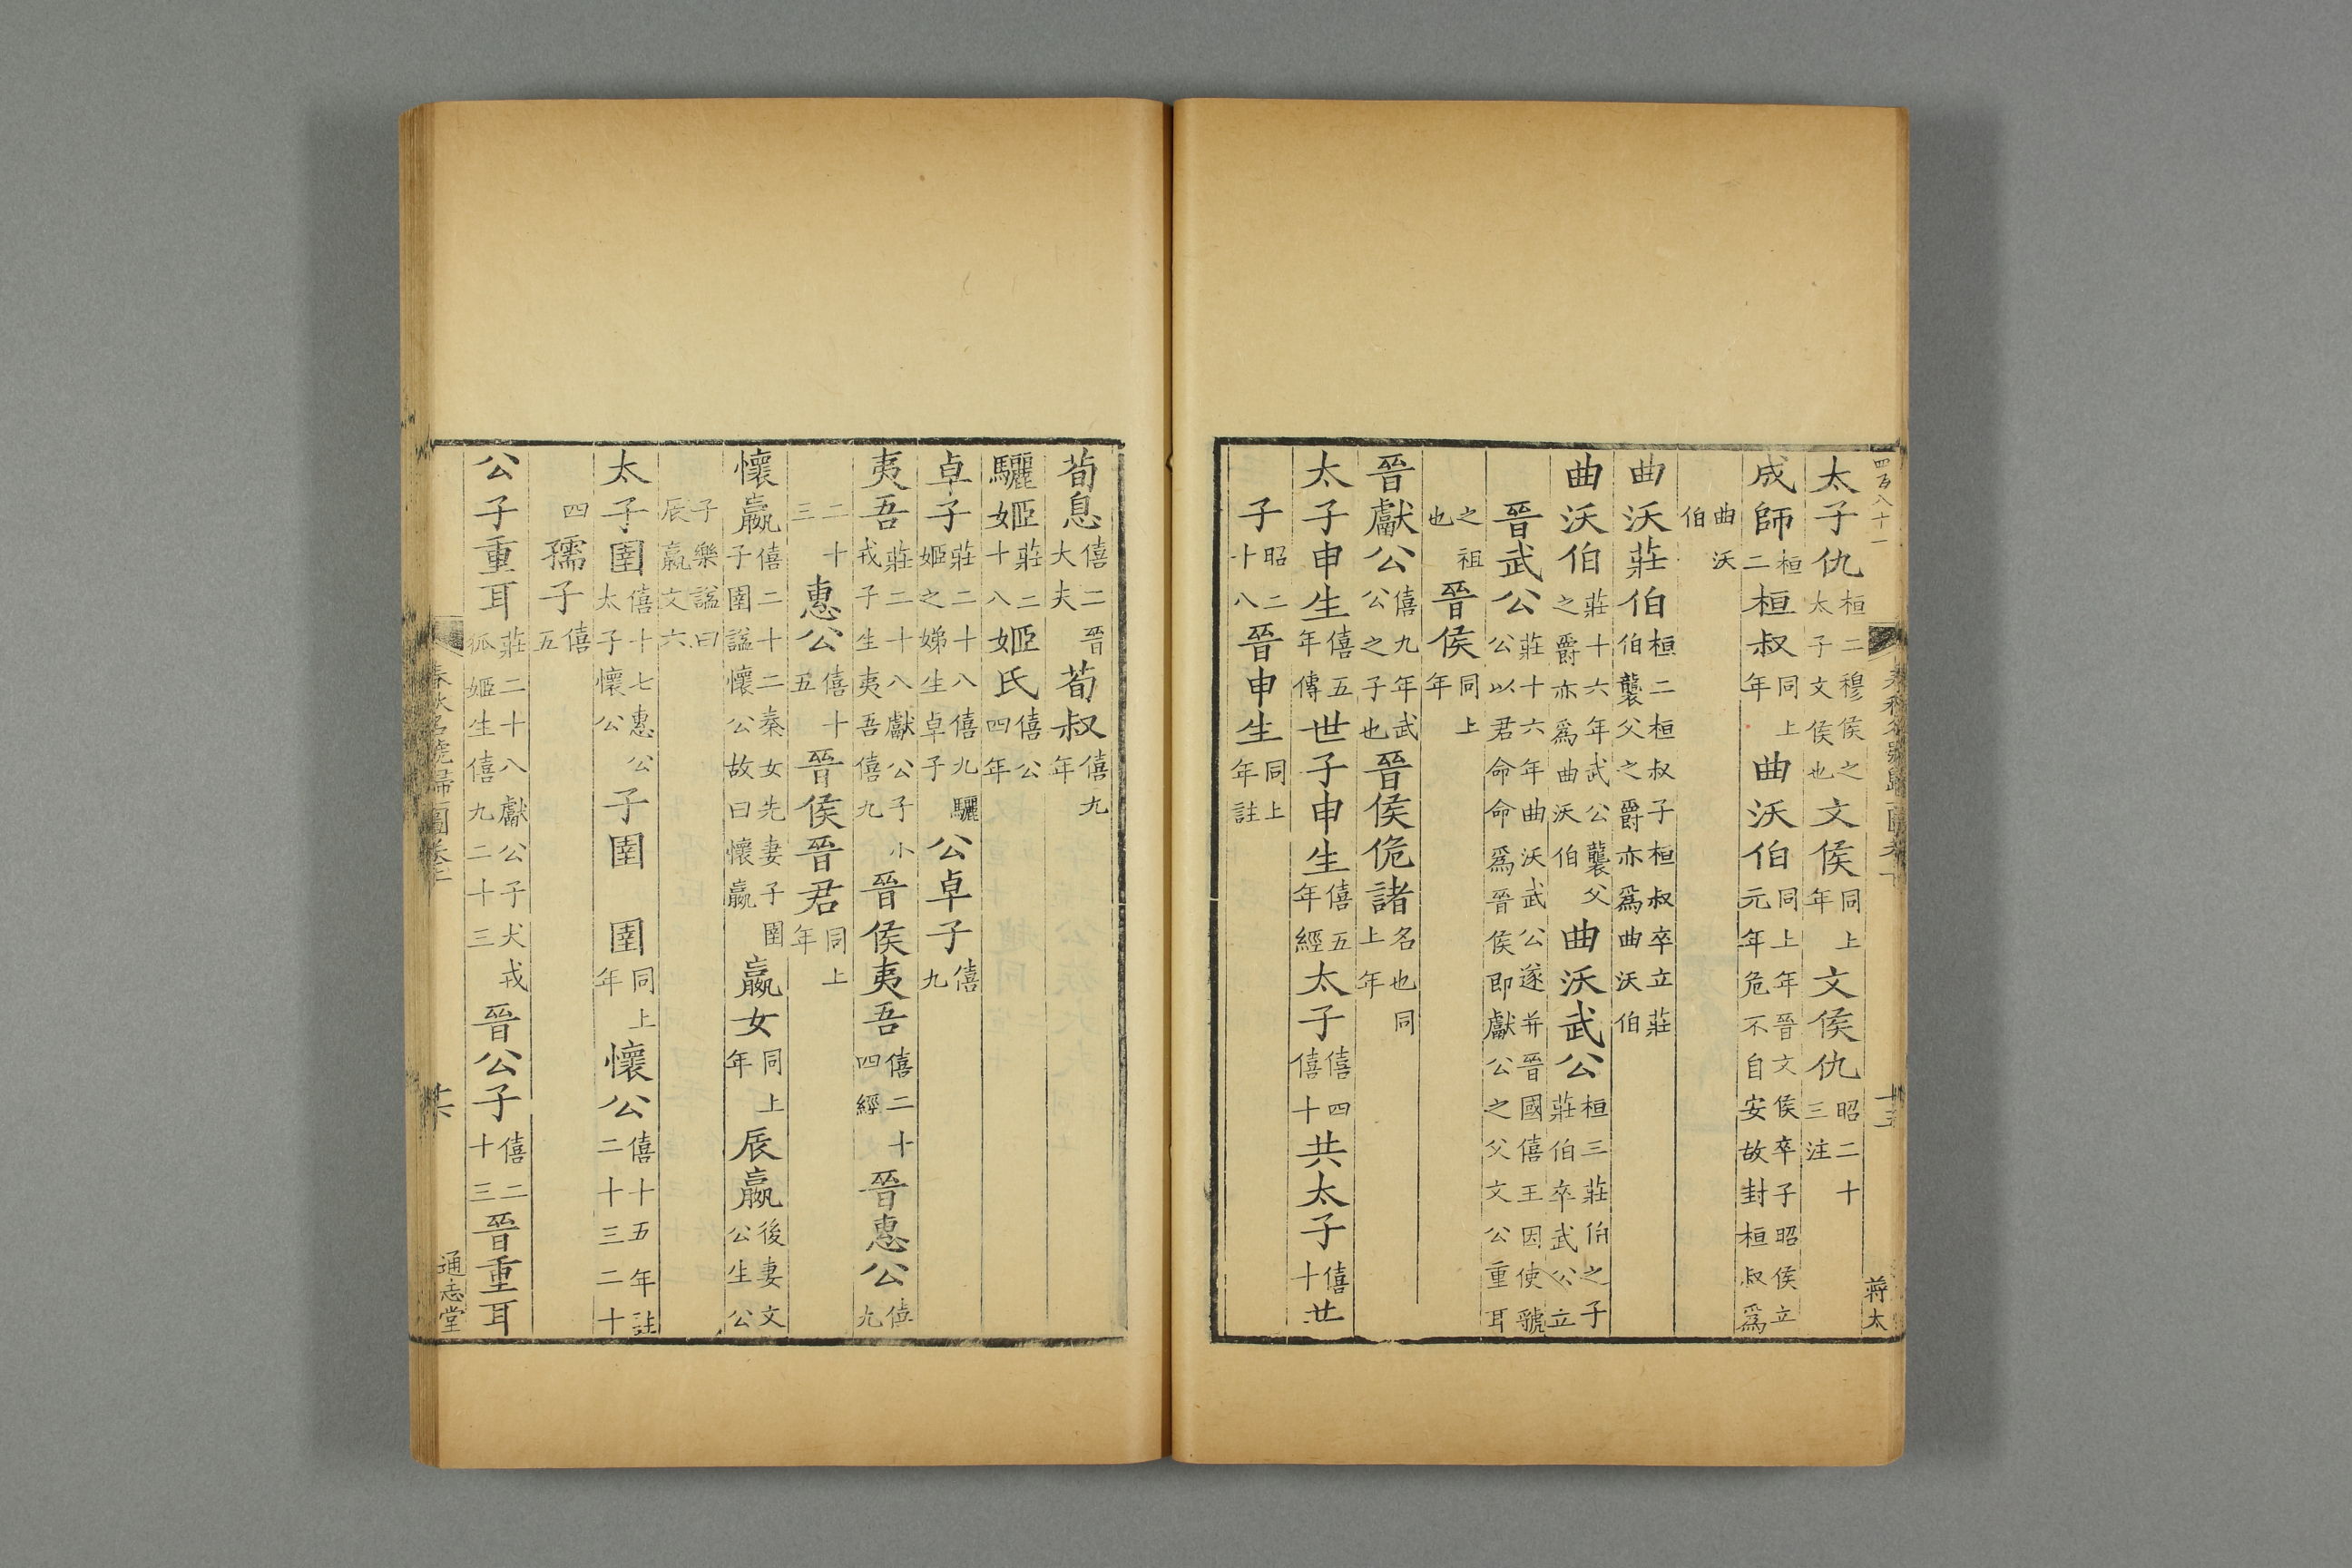 四百八十一
蔣太
太子仇桓二穆侯之太子文侯也文侯同上年文侯仇昭二十三注
成師桓二桓叔同上年曲沃伯同上年晉文侯卒子昭侯立元年危不自安故封桓叔爲
曲沃伯
曲沃莊伯桓二桓叔子桓叔卒立莊伯襲父之爵亦爲曲沃伯
曲沃伯莊十六年武公襲父之爵亦爲曲沃伯曲沃武公桓三莊伯之子莊伯卒武公立
晉武公莊十六年曲沃武公遂并晉國僖王因使虢公以君命命爲晉侯即獻公之父文公重耳
之祖也晉侯同上年
晉獻公僖九年武公之子也晉侯佹諸名也同上年
太子申生僖五年傳世子申生僖五年經太子僖四僖十共太子僖十世
子昭二十八晉申生同上年註
荀息僖二晉大夫荀叔僖九年
驪姬莊二十八姬氏僖公四年
卓子莊二十八僖九驪姬之娣生卓子公卓子僖九
夷吾莊二十八獻公子小戎子生夷吾僖九晉侯夷吾僖二十四經晉惠公僖九
二十三惠公僖十五晉侯晉君同上年
懷嬴僖二十二秦女先妻子圉子圉謚懷公故曰懷嬴嬴女同上年辰嬴後妻文公生公
子樂謚曰辰嬴文六
太子圉僖十七惠公太子懷公子圉 圉同上年懷公僖十五年註二十三二十
四孺子僖五
公子重耳莊二十八獻公子犬戎狐姬生僖九二十三晉公子僖二十三晉重耳
春秋名號歸一圖卷上
通志堂